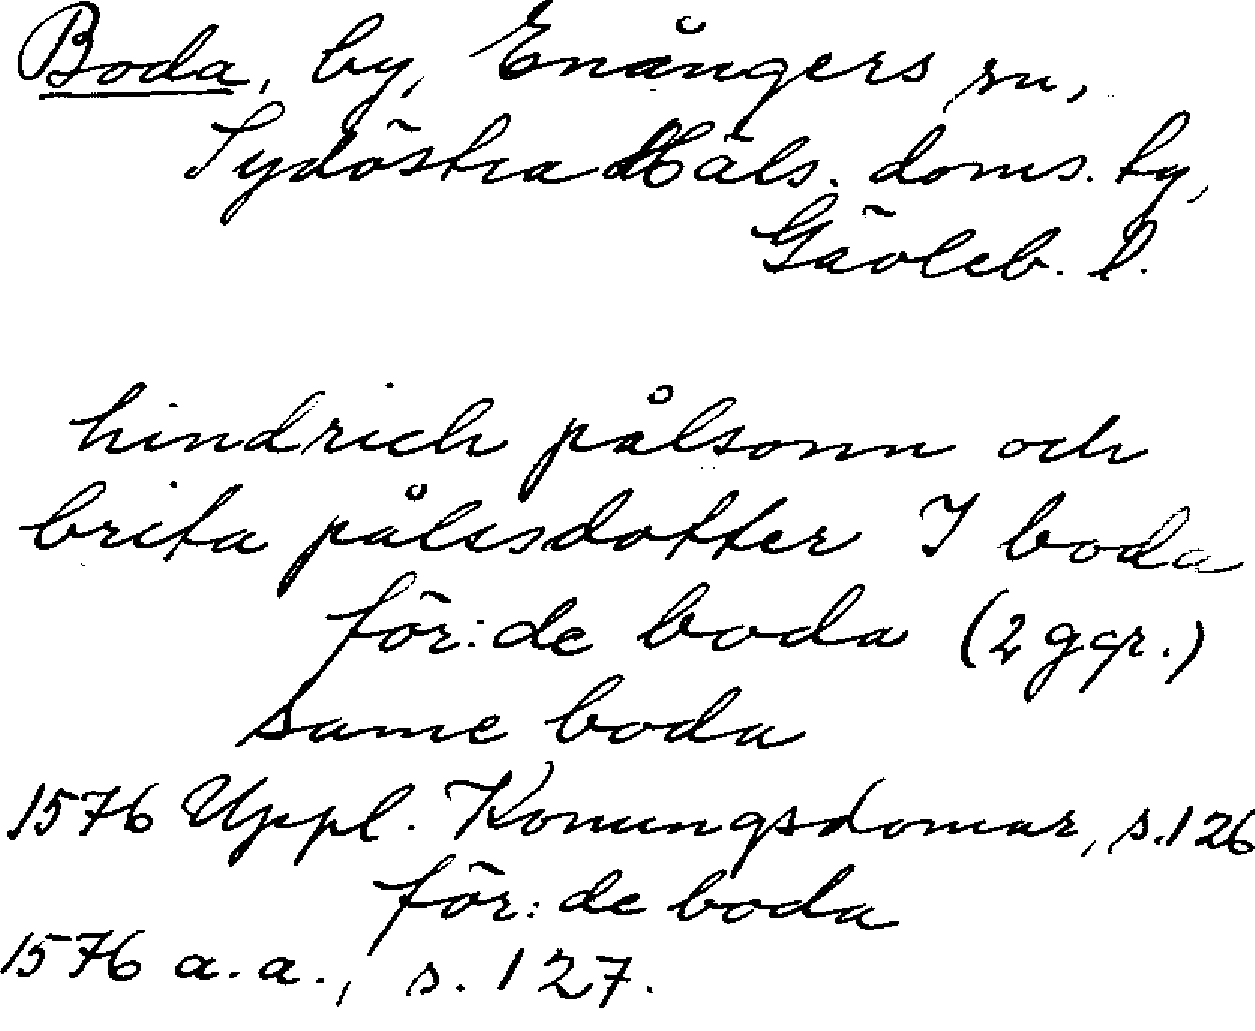 Boda, by, Enångers sn,
Sydöstra Häls. doms. ty,
Gävleb. l.
hindrich pålsonn och
brita pålssdotter I boda
för:de boda (2 ggr.)
same boda
1576 Uppl. Konungsdomar, s.126
för:de boda
1576 a.a., s. 127.